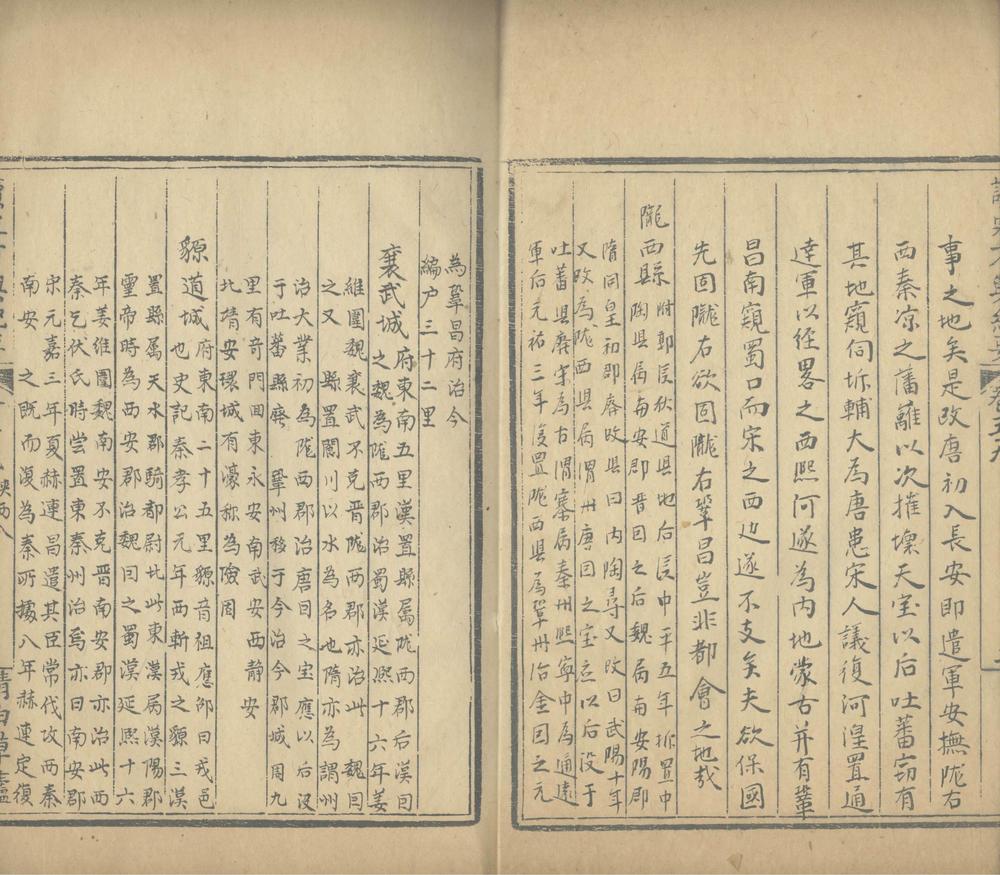 事之地矣是故唐初入長安即遣軍安撫隴右
西秦凉之藩離以次摧壞天宝以后吐蕃窃有
其地窺伺圻輔大為唐患宋人議復河湟置通
達軍以経畧之西熙河遂為内地蒙古并有鞏
昌南窺蜀口而宋之西边遂不支矣夫欲保國
先固隴右欲固隴右鞏昌豈非都會之地哉
隴西縣
附郭后秋道县地后漢中平五年析置中
陶县属南安郡晋因之后魏属南安陽郡
隋開皇初郡廢改县曰内陶尋又改曰武陽十年
又改為隴西县属渭州唐因之宝应以后没于
吐蕃县廢宋為古渭寨属秦州熙寧中為通遠
軍后元祐三年復置隴西县為鞏州治金因之元
為鞏昌府治今
編户三十二里
襄武城
府東南五里漢置縣属隴西郡后漢因
之魏為隴西郡治蜀漢延熙十六年姜
維圍魏襄武不克晋隴西郡亦治此魏因
之又 縣置閿川以水為名也隋亦為謂州
治大業初為隴西郡治唐曰之宝應以后没
于吐蕃縣廢 鞏州移于今治今郡城周九
里有奇門四東永安南武安西静安
北靖安環城有濠称為險固
豲道城
府東南二十五里豲音祖應邵曰戎邑
也史記秦孝公元年西斬戎之豲三漢
置縣属天水郡騎都尉此東漢属漢陽郡
霊帝時為西安郡治魏曰之蜀漢延熙十六
年姜維圍魏南安不克晋南安郡亦治此西
秦乞伏氏時尝置東秦州治焉亦曰南安郡
宋元嘉三年夏赫連昌遣其臣常代攻西秦
南安 之既而復為秦所據八年赫連定復
清白草廬